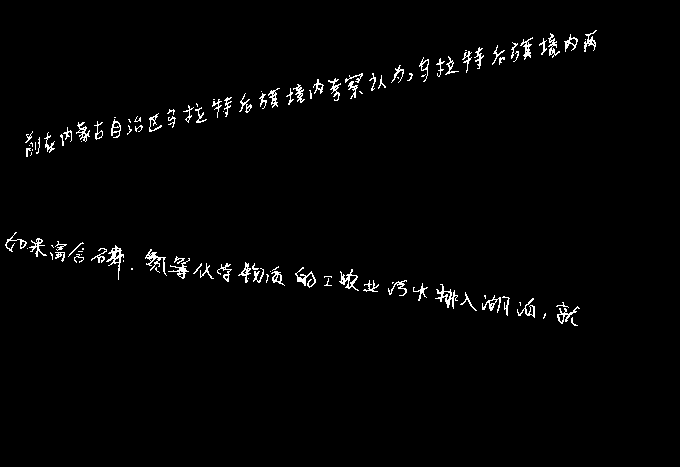 前在内蒙古自治区乌拉特后旗境内考察认为,乌拉特后旗境内两
如果富含磷、氮等化学物质的工农业污水排入湖泊,就